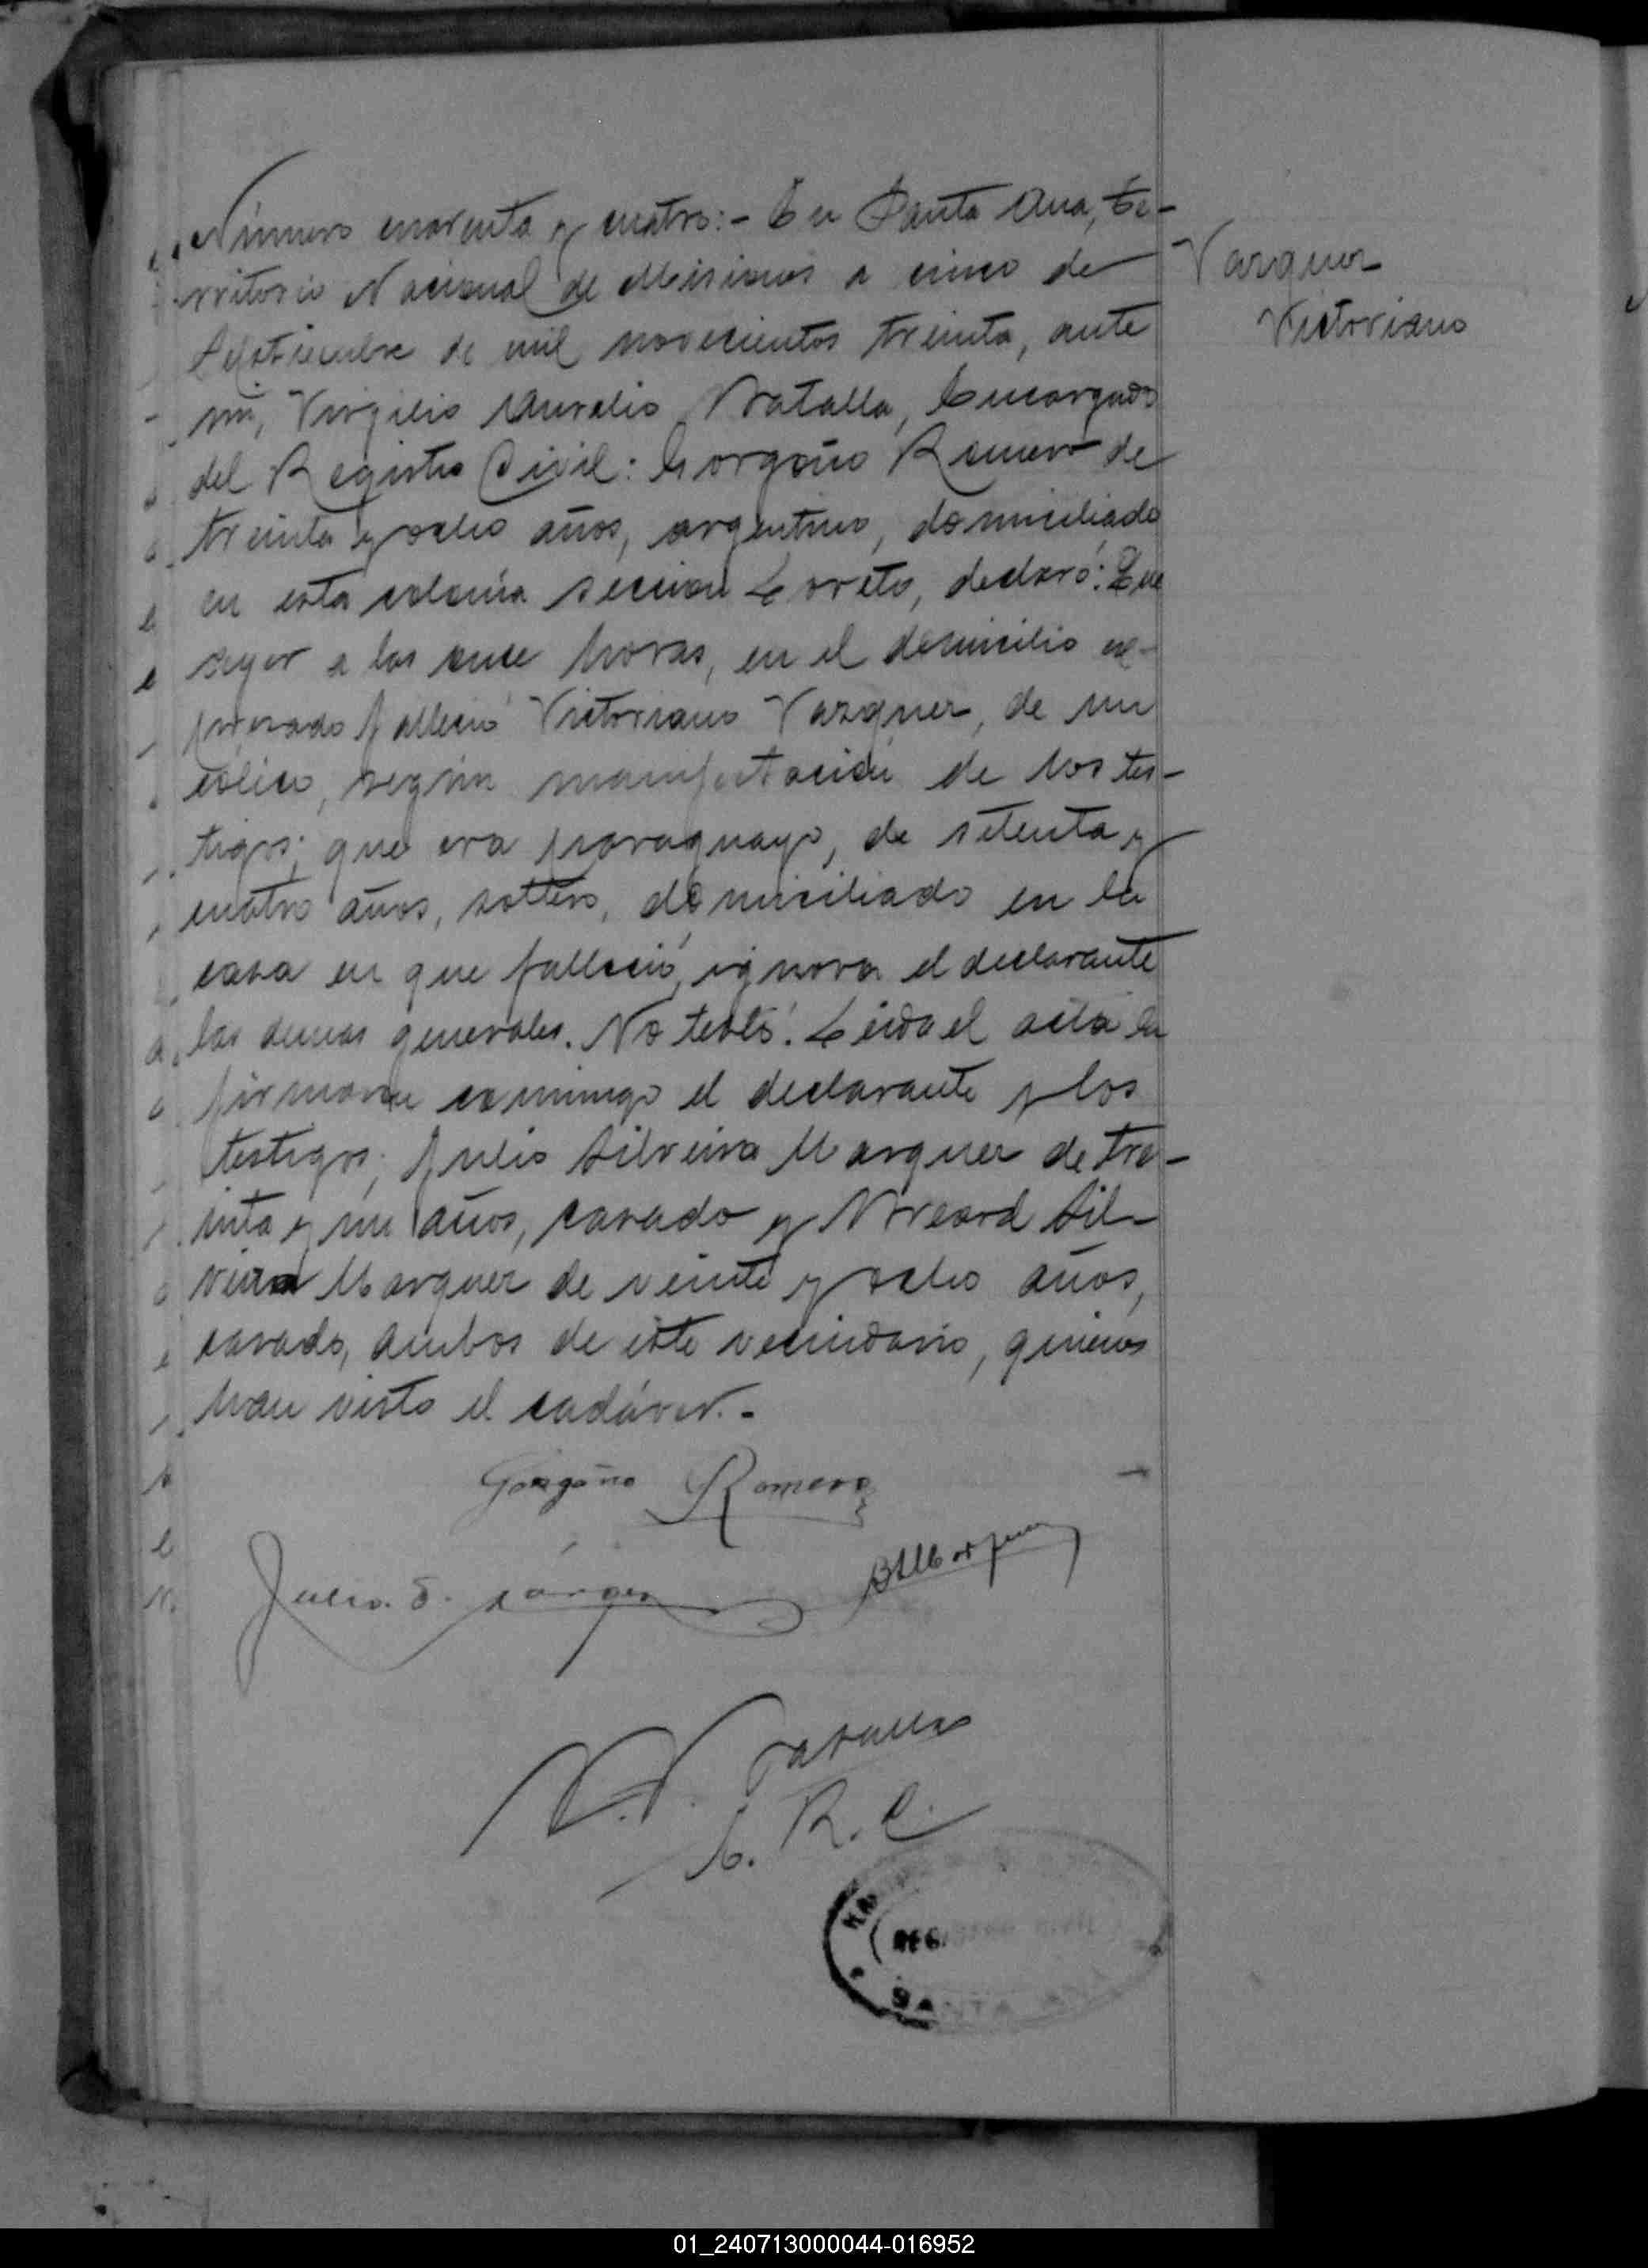 Número cuarenta y cuatro:- En Santa Ana, te-
rritorio Nacional de Misiones a cinco de
Septiembre de mil novecientos treinta, ante
mi, Virgilio Aurelio Ratalla, Encargado
del Registro Civil: Gorgoño Romero de
treinta y ocho años, argentino, domiciliado
en esta colonia seccion Loreto, declaró: Que
ayer a las once horas, en el domicilio ex-
presado falleció Victoriano Vazquez, de un
cólico, según manifestación de los tes-
tigos; que era paraguayo, de setenta y
cuatro años, soltero, domiciliado en la
casa en que falleció, ignora el declarante
las demas generales. No testó. Leida el acta la
firmaron conmigo el declarante y los
testigos; Julio Silveira Marquez de tre-
inta y un años, casado y Silv-
veira Marquez de veinte y ocho años,
casado, ambos de este vecindario, quienes
han visto el cadáver.-
Vazquez
Victoriano
Gorgoño Romero
Julio S.
E. R. C.
01_240713000044-016952